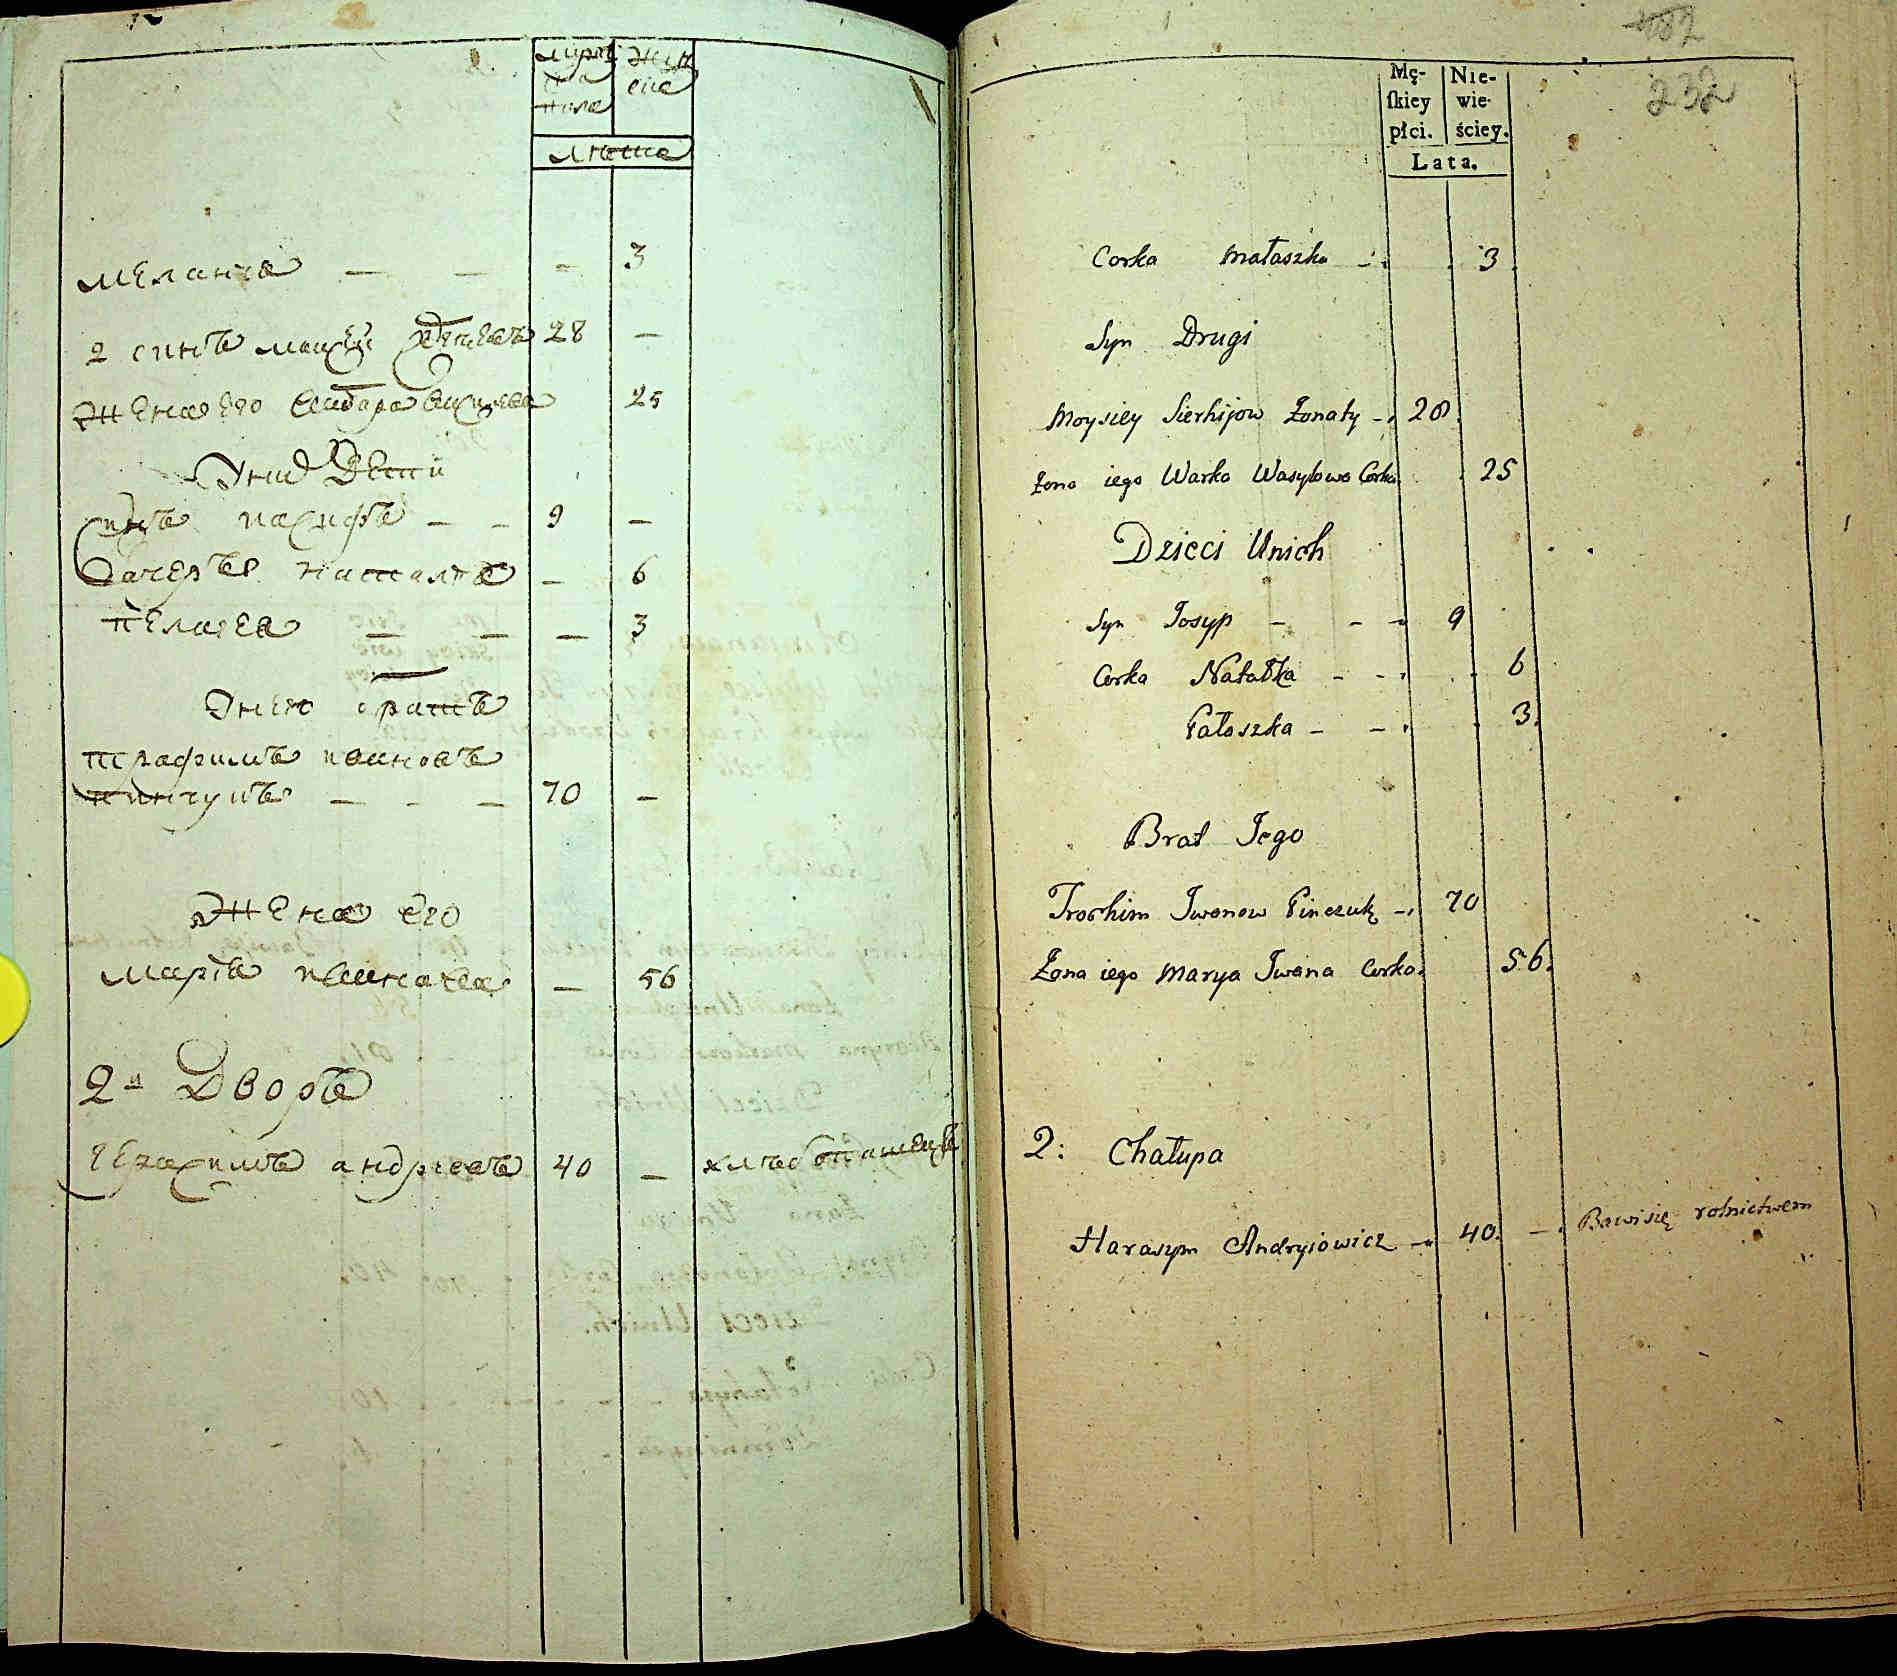 Меланіа — — — 3
2 сынъ моисей 28 —
Жена его 25
У них Дети
Сынъ иосифъ — — 9 —
Дочеръ наталіа — 6
Пелагеа — — — 3
У него братъ
Трафимъ ивановъ
пинчукъ — — — 70 —
Жена его
Маріа иванова — 56
2й Дворъ
Герасимъ андреевъ 40 — хлебопашецъ
182
232
Mę- Nie-
ſkiey wie-
płci. ściey.
Lata.
Corka Małaszka — 3
Syn Drugi
Moysiey Sierhijow Żonaty — 28.
Żona iego Warka Wasylowa Corka 25
Dzieci Unich
Syn Josyp — — — 9
Corka Natałka — — 6
Pałaszka — — 3.
Brat Jego
Trochim Iwanow Pinczuk — 70
Żona iego Marya Iwana Corka. 56.
2: Chałupa
Harasym Andryiowicz — 40. — Bawi się rolnictwem